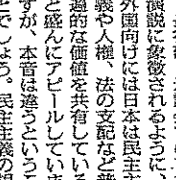 演説に象徴されるように、
外国向けには日本は民主主
義や人権、法の支配など普
遍的な価値を共有している
と盛んにアピールしていま
すが、本音は違うというこ
とでしょう。民主主義の